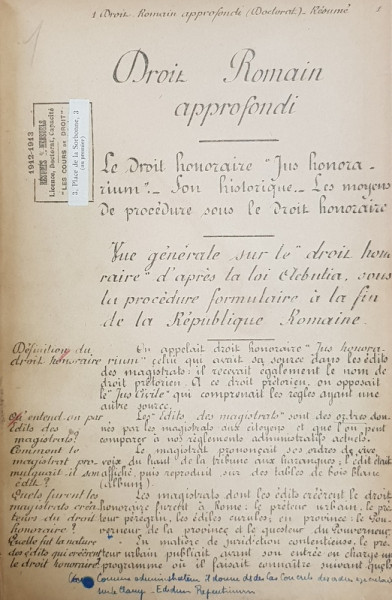 1 Droit Romain approfondi (Doctorat) _ Résumé
1912-1913
RÉSUMÉS & MANUELS
Licence, Doctorat, Capacité
"LES COURS DE DROIT"
3, Place de la Sorbonne, 3
(au premier)
Droit Romain
approfondi
Le droit honoraire "Jus honora-
rium"._ Son historique._ Les moyens
de procédure sous le droit honoraire
Vue générale sur le "droit hono
raire" d'après la loi Aebutia, sous
la procédure formulaire à la fin
de la République Romaine.
Définition du
droit honoraire
On appelait droit honoraire "Jus honora-
rium" celui qui avait sa source dans les édits
des magistrats: il recevait également le nom de
droit prétorien. A ce droit prétorien, on opposait
le "Jus Civile" qui comprenait les règles ayant une
autre source.
Qu'entend on par
édits des
magistrats?
Les "édits des magistrats" sont des ordres don-
nés par les magistrats aux citoyens et que l'on peut
comparer à nos règlements administratifs actuels.
Comment le
magistrat pro-
mulguait il son
édit?
Le magistrat prononçait ses ordres de vive
voix du haut de la tribune aux harangues; l'édit était
affiché, puis reproduit sur des tables de bois blanc
(album).
Quels furent les
magistrats créa-
teurs du droit
honoraire?
Les magistrats dont les édits créèrent le droit
honoraire furent à Rome: le préteur urbain, le pré
teur pérégrin, les édiles curules; en province: le Gou-
verneur de la province et le questeur du Gouverneur.
Quelle fut la nature
des édits qui créèrent
le droit honoraire
En matière de juridiction contentieuse, le pré-
teur urbain publiait avant son entrée en charge un
programme où il faisait connaître suivant quels
Edictum Repentinum